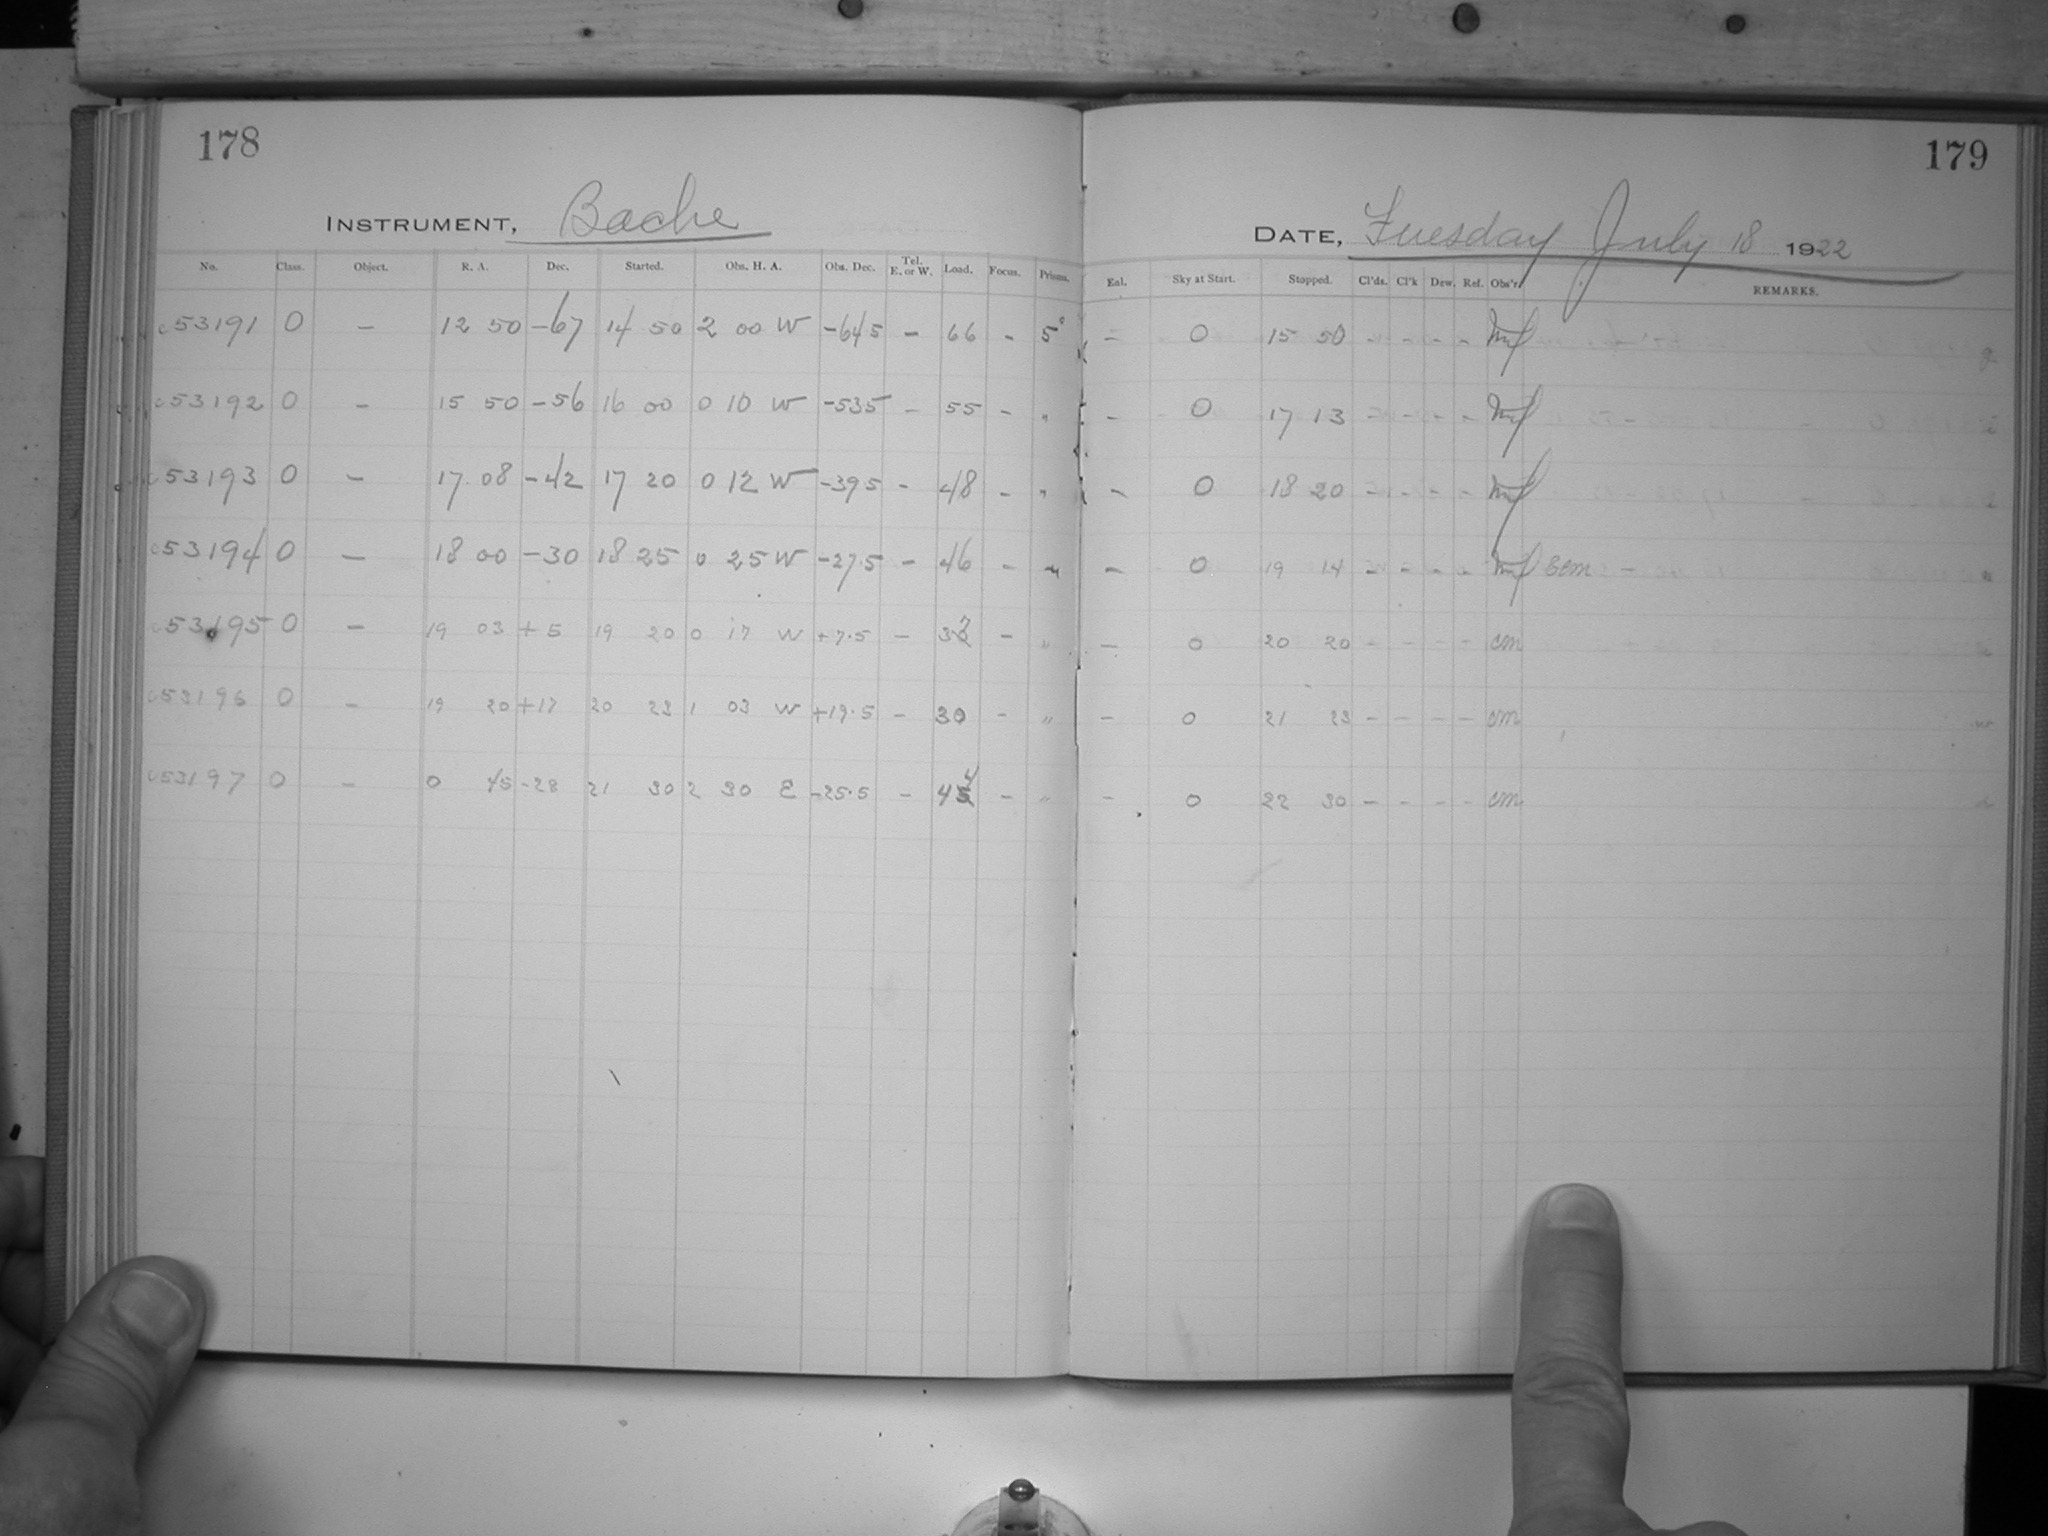 178
INSTRUMENT, Bache
No. Class. Object. R. A. Dec. Started. Obs. H. A. Obs. Dec. Tel. E. or W. Load. Focus. Prisms.
c53191 0 – 12 50 -67 14 50 2 00 W -64.5 – 66 – 5°
c53192 0 – 15 50 -56 16 00 0 10 W -53.5 – 55 – "
c53193 0 – 17 08 -42 17 20 0 12 W -39.5 – 48 – "
c53194 0 – 18 00 -30 18 25 0 25 W -27.5 – 46 – "
c53195 0 – 19 03 +5 19 20 0 17 W +7.5 – – "
c53196 0 – 19 20 +17 20 23 1 03 W +19.5 – 30 – "
c53197 0 – 0 45 -28 21 30 2 30 E -25.5 – – "
179
DATE, Tuesday July 18 1922
Eal. Sky at Start. Stopped. Cl'ds. Cl'k Dew. Ref. Obs'r. REMARKS.
– 0 15 50 – – – –
– 0 17 13 – – – –
– 0 18 20 – – – –
– 0 19 14 – – – –
– 0 20 20 – – – – cm
– 0 21 23 – – – – cm
– 0 22 30 – – – – cm